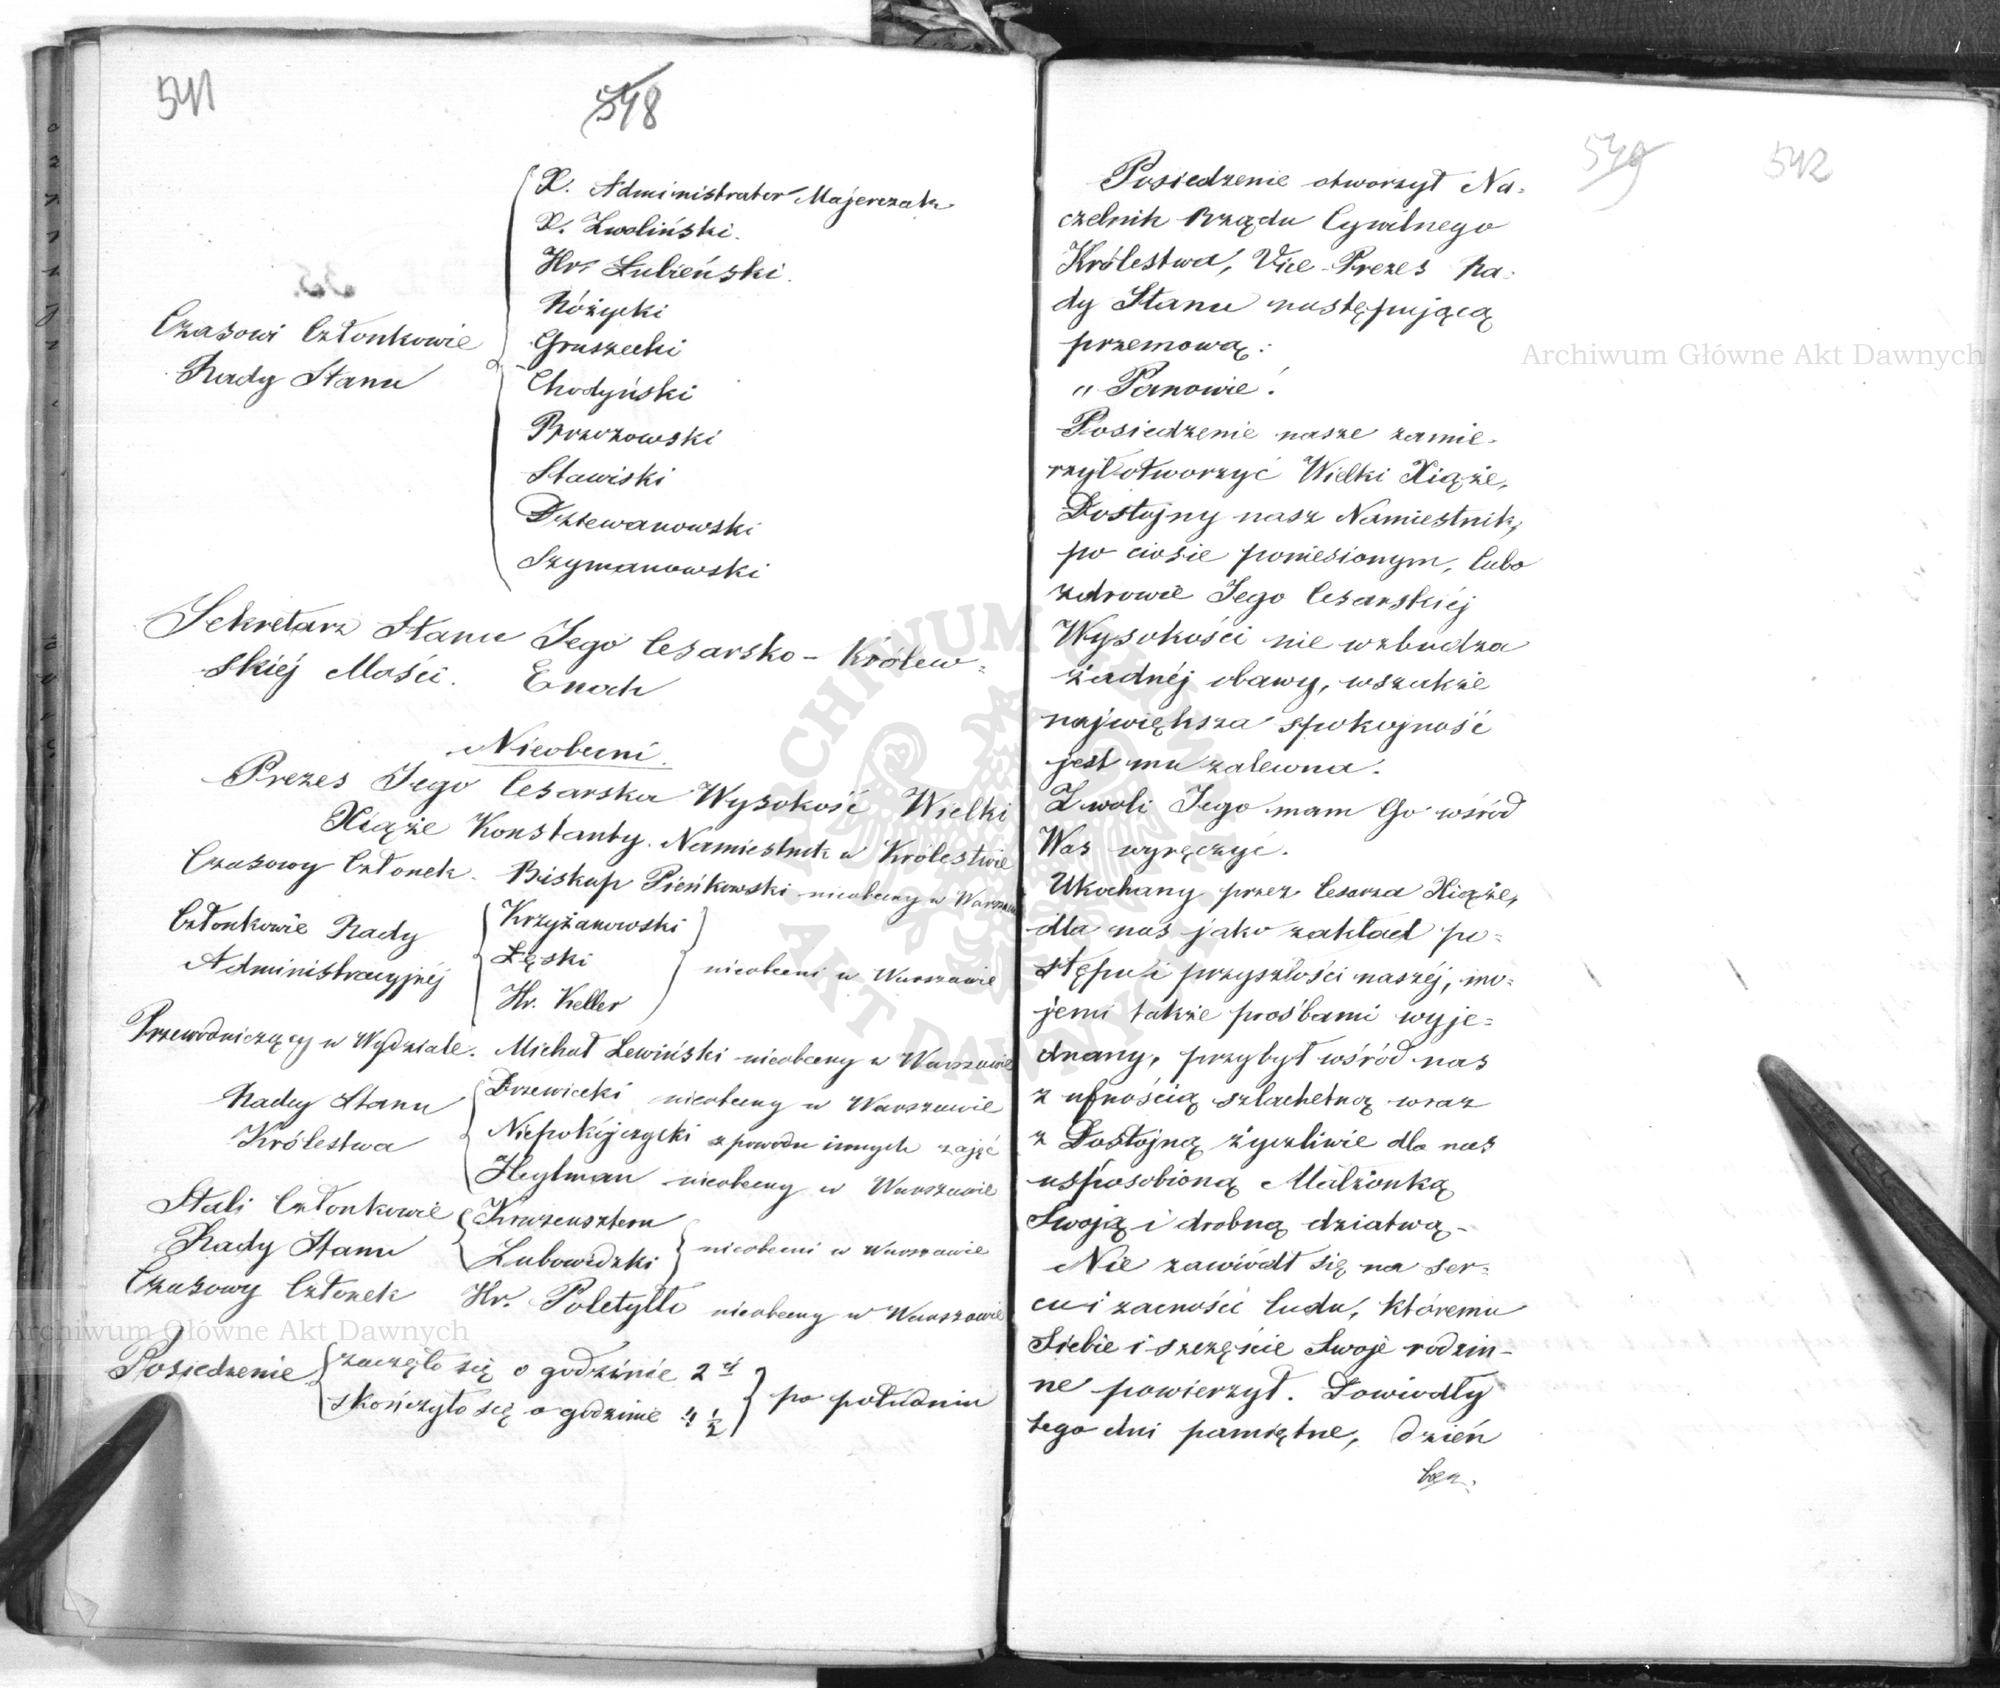 541
548
X. Administrator Majerczak
X. Zwoliński.
Hr. Łubieński.
Różycki
Czasowi Członkowie
Rady Stanu
Gruszecki
Chodyński
Brzozowski
Stawiski
Dziewanowski
Szymanowski
Sekretarz Stanu Jego Cesarsko-Królew=
skiéj Mości. Enoch
Nieobecni.
Prezes Jego Cesarska Wysokość Wielki
Xiąże Konstanty. Namiestnik w Królestwie
Czasowy Członek. Biskup Pieńkowski nieobecny w Warszawie
Członkowie Rady
Administracyjnéj
Krzyżanowski
Łęski
Hr. Keller
nieobecni w Warszawie
Przewodniczący w Wydziale. Michał Lewiński nieobecny w Warszawie
Radcy Stanu
Królestwa
Drzewiecki nieobecny w Warszawie
Niepokójczycki z powodu innych zajęć
Heylman nieobecny w Warszawie
Stali Członkowie
Rady Stanu
Kruzensztern
Lubowidzki
nieobecni w Warszawie
Czasowy Członek Hr. Poletyłło nieobecny w Warszawie
Posiedzenie
zaczęło się o godzinie 2éj
skończyło się o godzinie 4 1/2
po południu
549
542
Posiedzenie otworzył Na=
czelnik Rządu Cywilnego
Królestwa, Vice-Prezes Ra=
dy Stanu następującą
przemową:
„Panowie!
Posiedzenie nasze zamie=
rzył otworzyć Wielki Xiąże,
Dostojny nasz Namiestnik,
po ciosie poniesionym, lubo
zdrowie Jego Cesarskiéj
Wysokości nie wzbudza
żadnéj obawy, wszakże
największa spokojność
jest mu zalecona.
Z woli Jego mam Go wśród
Was wyręczyć.
Ukochany przez Cesarza Xiąże,
dla nas jako zakład po=
stępu i przyszłości naszéj, mo=
jemi także prośbami wyje=
dnany, przybył wśród nas
z ufnością szlachetną wraz
z Dostojną życzliwie dla nas
usposobioną Małżonką
Swoją i drobną dziatwą.
Nie zawiódł się na ser=
cu i zacności ludu, któremu
Siebie i szczęście Swoje rodzin=
ne powierzył. Dowiodły
tego dni pamiętne, dzień
Archiwum Główne Akt Dawnych
Archiwum Główne Akt Dawnych
ARCHIWUM GŁÓWNE
AKT DAWNYCH